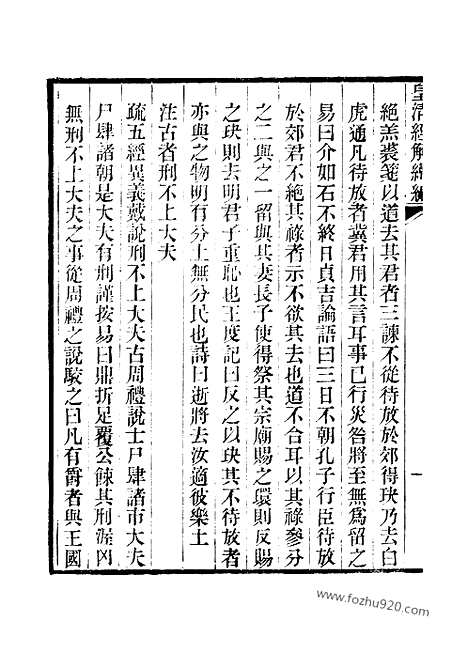 皇清經解續編
絶羔裘箋以道去其君者三諫不從待放於郊得玦乃去白
虎通凡待放者冀君用其言耳事已行災咎將至無爲留之
易曰介如石不終日貞吉論語曰三日不朝孔子行臣待放
於郊君不絶其祿者示不欲其去也道不合耳以其祿參分
之二與之一留與其妻長子使得祭其宗廟賜之環則反賜
之玦則去明君子重恥也王度記曰反之以玦其不待放者
亦與之物明有分土無分民也詩曰逝將去汝適彼樂土
注古者刑不上大夫
疏五經異義戴說刑不上大夫古周禮說士尸肆諸市大夫
尸肆諸朝是大夫有刑謹按易曰鼎折足覆公餗其刑渥凶
無刑不上大夫之事從周禮之說駮之曰凡有爵者與王國
一
www.fozhu920.com